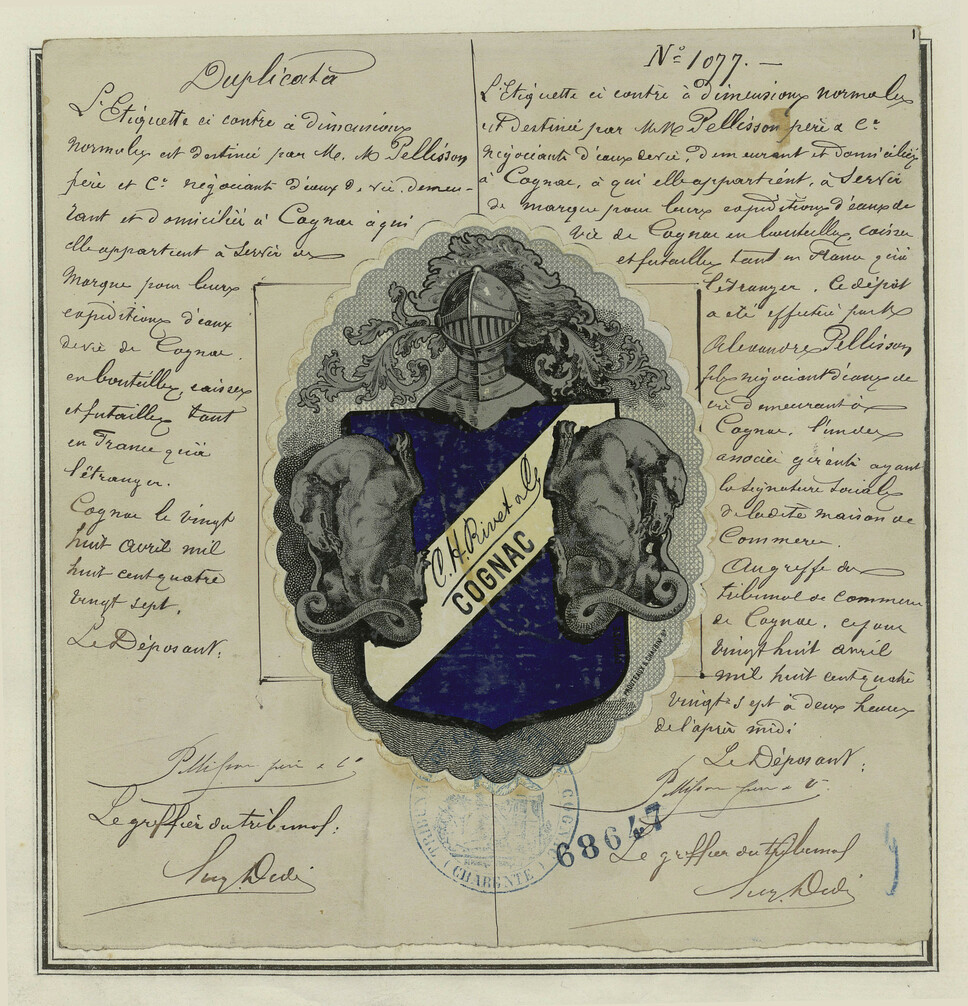 Duplicata
L'Etiquette ci contre à dimensions
normales est destinée par M. M Pellisson
père et Cie négociants d'eaux de vie, demeu-
rant et domiciliés à Cognac à qui
elle appartient à servir de
marque pour leurs
expéditions d'eaux
de vie de Cognac
en bouteilles caisses
et futailles tant
en France qu'à
l'étranger.
Cognac le vingt
huit avril mil
huit cent quatre
vingt sept.
Le Déposant:
Pellisson père & Co
Le greffier du tribunal:
No 1077. —
L'Etiquette ci contre à dimensions normales
est destinée par M.M Pellisson père & Ce
négociants d'eaux de vie, demeurant et domiciliés
à Cognac, à qui elle appartient, à servir
de marque pour leurs expéditions d'eaux de
vie de Cognac en bouteilles, caisses
et futailles tant en France qu'à
l'étranger. Le dépôt
a été effectué par
Alexandre Pellisson
fils négociant d'eaux de
vie demeurant à
Cognac, l'un des
associés gérants ayant
la signature sociale
de la dite maison de
Commerce.
Au greffe du
tribunal de commerce
de Cognac, ce jour
vingt huit avril
mil huit cent quatre
vingt sept à deux heures
de l'après midi
Le Déposant:
Pellisson père & Co
Le greffier du tribunal
1
C. H. Rivet & Co
COGNAC
CHARENTE
68647